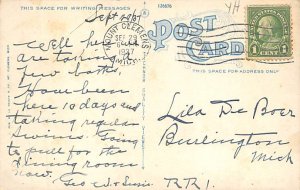 THIS SPACE FOR WRITING MESSAGES
126676
Sept 28
POST CARD
MOUNT CLEMENS
SEP 28
1927
MICH.
1 CENT 1
THIS SPACE FOR ADDRESS ONLY
Well here we
are taking a
few baths.
Have been
here 10 days and
taking regular
swims. Going
to pull for the
dining room
now.
Geo W. + Susie
Lila De Boer
Burlington
Mich
RR 1.